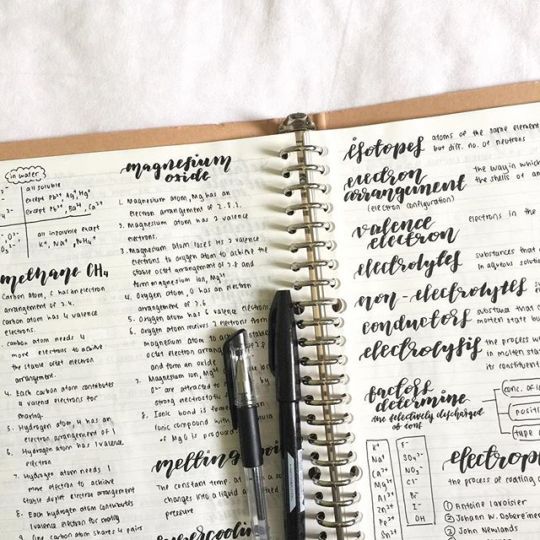 in water
all soluble
except Pb²⁺, Ag⁺, Hg²⁺
except Pb²⁺, Ba²⁺, Ca²⁺
all insoluble except
K⁺, Na⁺, NH₄⁺
methane CH₄
Carbon atom, C has an electron
arrangement of 2.4.
carbon atom has 4 valence
electrons.
carbon atom needs 4
more electrons to achieve
the stable octet electron
arrangement
4. Each carbon atom contributes
4 valence electrons for
sharing.
5. Hydrogen atom, H has an
electron arrangement of 1
6. Hydrogen atom has 1 valence
electron.
7. Hydrogen atom needs 1
more electron to achieve
stable duplet electron arrangement
8. Each hydrogen atom contributes
1 valence electron for sharing
9. One carbon atom shares 4 pairs
magnesium
oxide
1. Magnesium atom, Mg has an
electron arrangement of 2.8.2.
2. Magnesium atom has 2 valence
electrons.
3. Magnesium atom loses its 2 valence
electrons to oxygen atom to achieve the
stable octet arrangement of 2.8 and
form magnesium ion, Mg²⁺
4. Oxygen atom, O has an electron
arrangement of 2.6
5. Oxygen atom has 6 valence electrons
6. Oxygen atom receives 2 electrons from
magnesium atom to achieve stable
octet electron arrangement
and form an oxide
7. Magnesium ion, Mg²⁺
O²⁻ are attracted to
strong electrostatic
8. Ionic bond is formed
Ionic compound with
of MgO is produced
melting
The constant temp at
changes into a liquid at
pressure
supercooling
isotopes
atoms of the same element
but diff. no. of neutrons
electron
arrangement
(electron configuration)
the way in which
the shells of an
valence
electron
electrons in the
electrolytes
substances that
in aqueous solution
non-electrolytes
conductors
substance that
molten state but
electrolysis
the process w
in molten state
its constituent
factors
determine
the selectively discharged
of ions
conc. of
position
type
K⁺
Na⁺
Ca²⁺
Mg²⁺
Al³⁺
Zn²⁺
Fe²⁺
Sn²⁺
F⁻
SO₄²⁻
NO₃⁻
Cl⁻
Br⁻
I⁻
OH⁻
electrop
the process of coating
1 Antoine Lavoisier
2 Johann W. Dobereiner
3 John Newlands